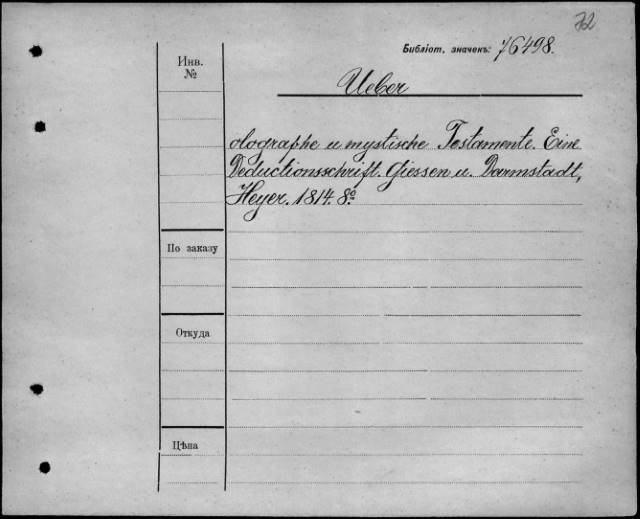 72
Библіот. значекъ: 76498.
Инв.
№
Ueber
olographe u mystische Testamente. Eine
Deductionsschrift. Giessen u. Darmstadt,
Heyer. 1814. 8º
По заказу
Откуда
Цѣна